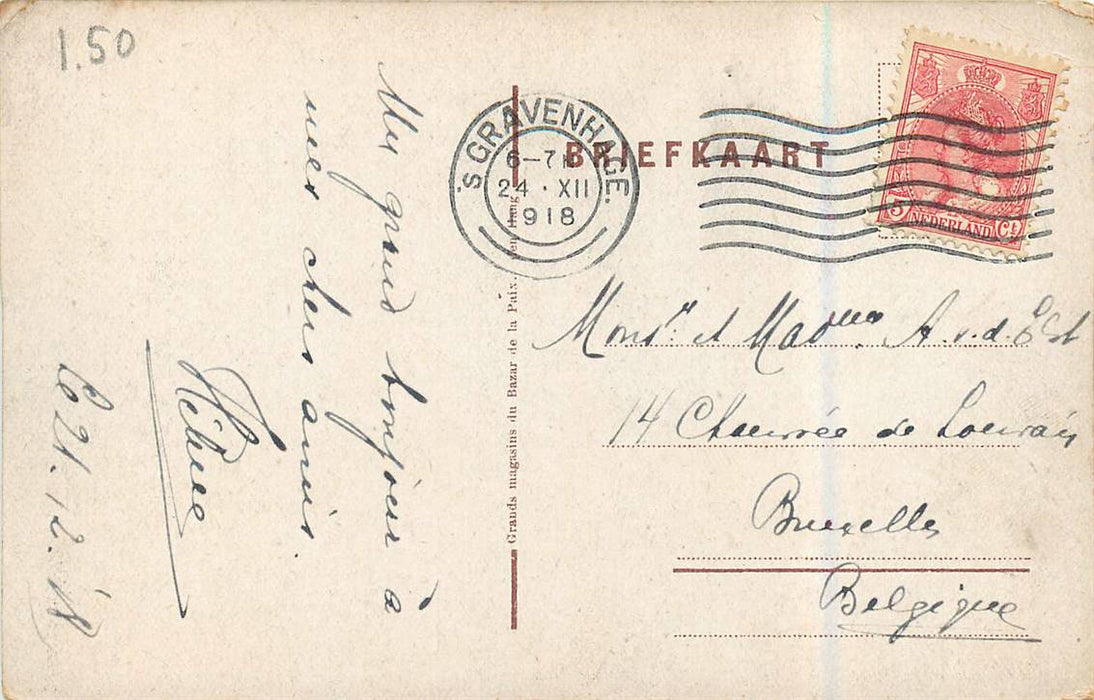 1.50
Un grand bonjour à
mes chers amis.
Hélène
Le 21.12.'18
Grands magasins du Bazar de la Paix.
'S GRAVENHAGE.
6-7
24 · XII
1918
BRIEFKAART
5 NEDERLAND Ct
Monsr. et Madme A. v. d. Elst
14 Chaussée de Louvain
Bruxelles
Belgique